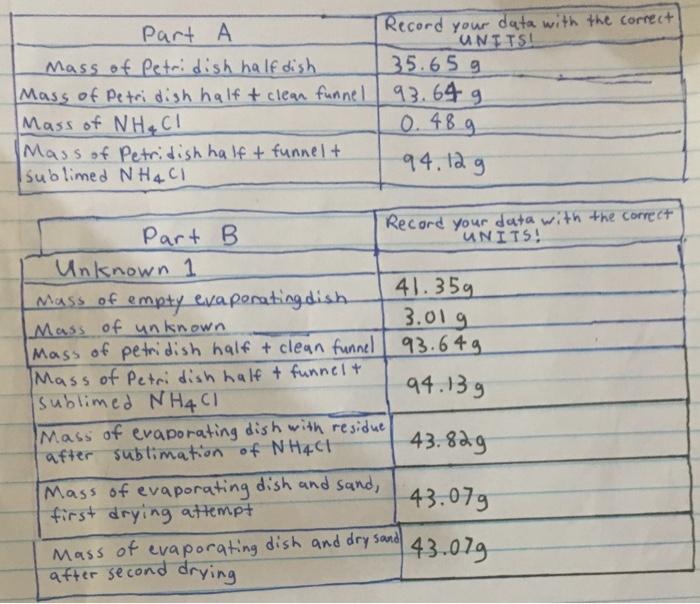 Part A
Record your data with the correct
UNITS!
Mass of Petri dish half dish
35.65 g
Mass of Petri dish half + clean funnel
93.64 g
Mass of NH4Cl
0.48 g
Mass of Petri dish half + funnel +
sublimed NH4Cl
94.12 g
Part B
Record your data with the correct
UNITS!
Unknown 1
Mass of empty evaporating dish
41.35g
Mass of unknown
3.01 g
Mass of petri dish half + clean funnel
93.64g
Mass of Petri dish half + funnel +
sublimed NH4Cl
94.13 g
Mass of evaporating dish with residue
after sublimation of NH4Cl
43.82g
Mass of evaporating dish and sand,
first drying attempt
43.07g
Mass of evaporating dish and dry sand
after second drying
43.07g